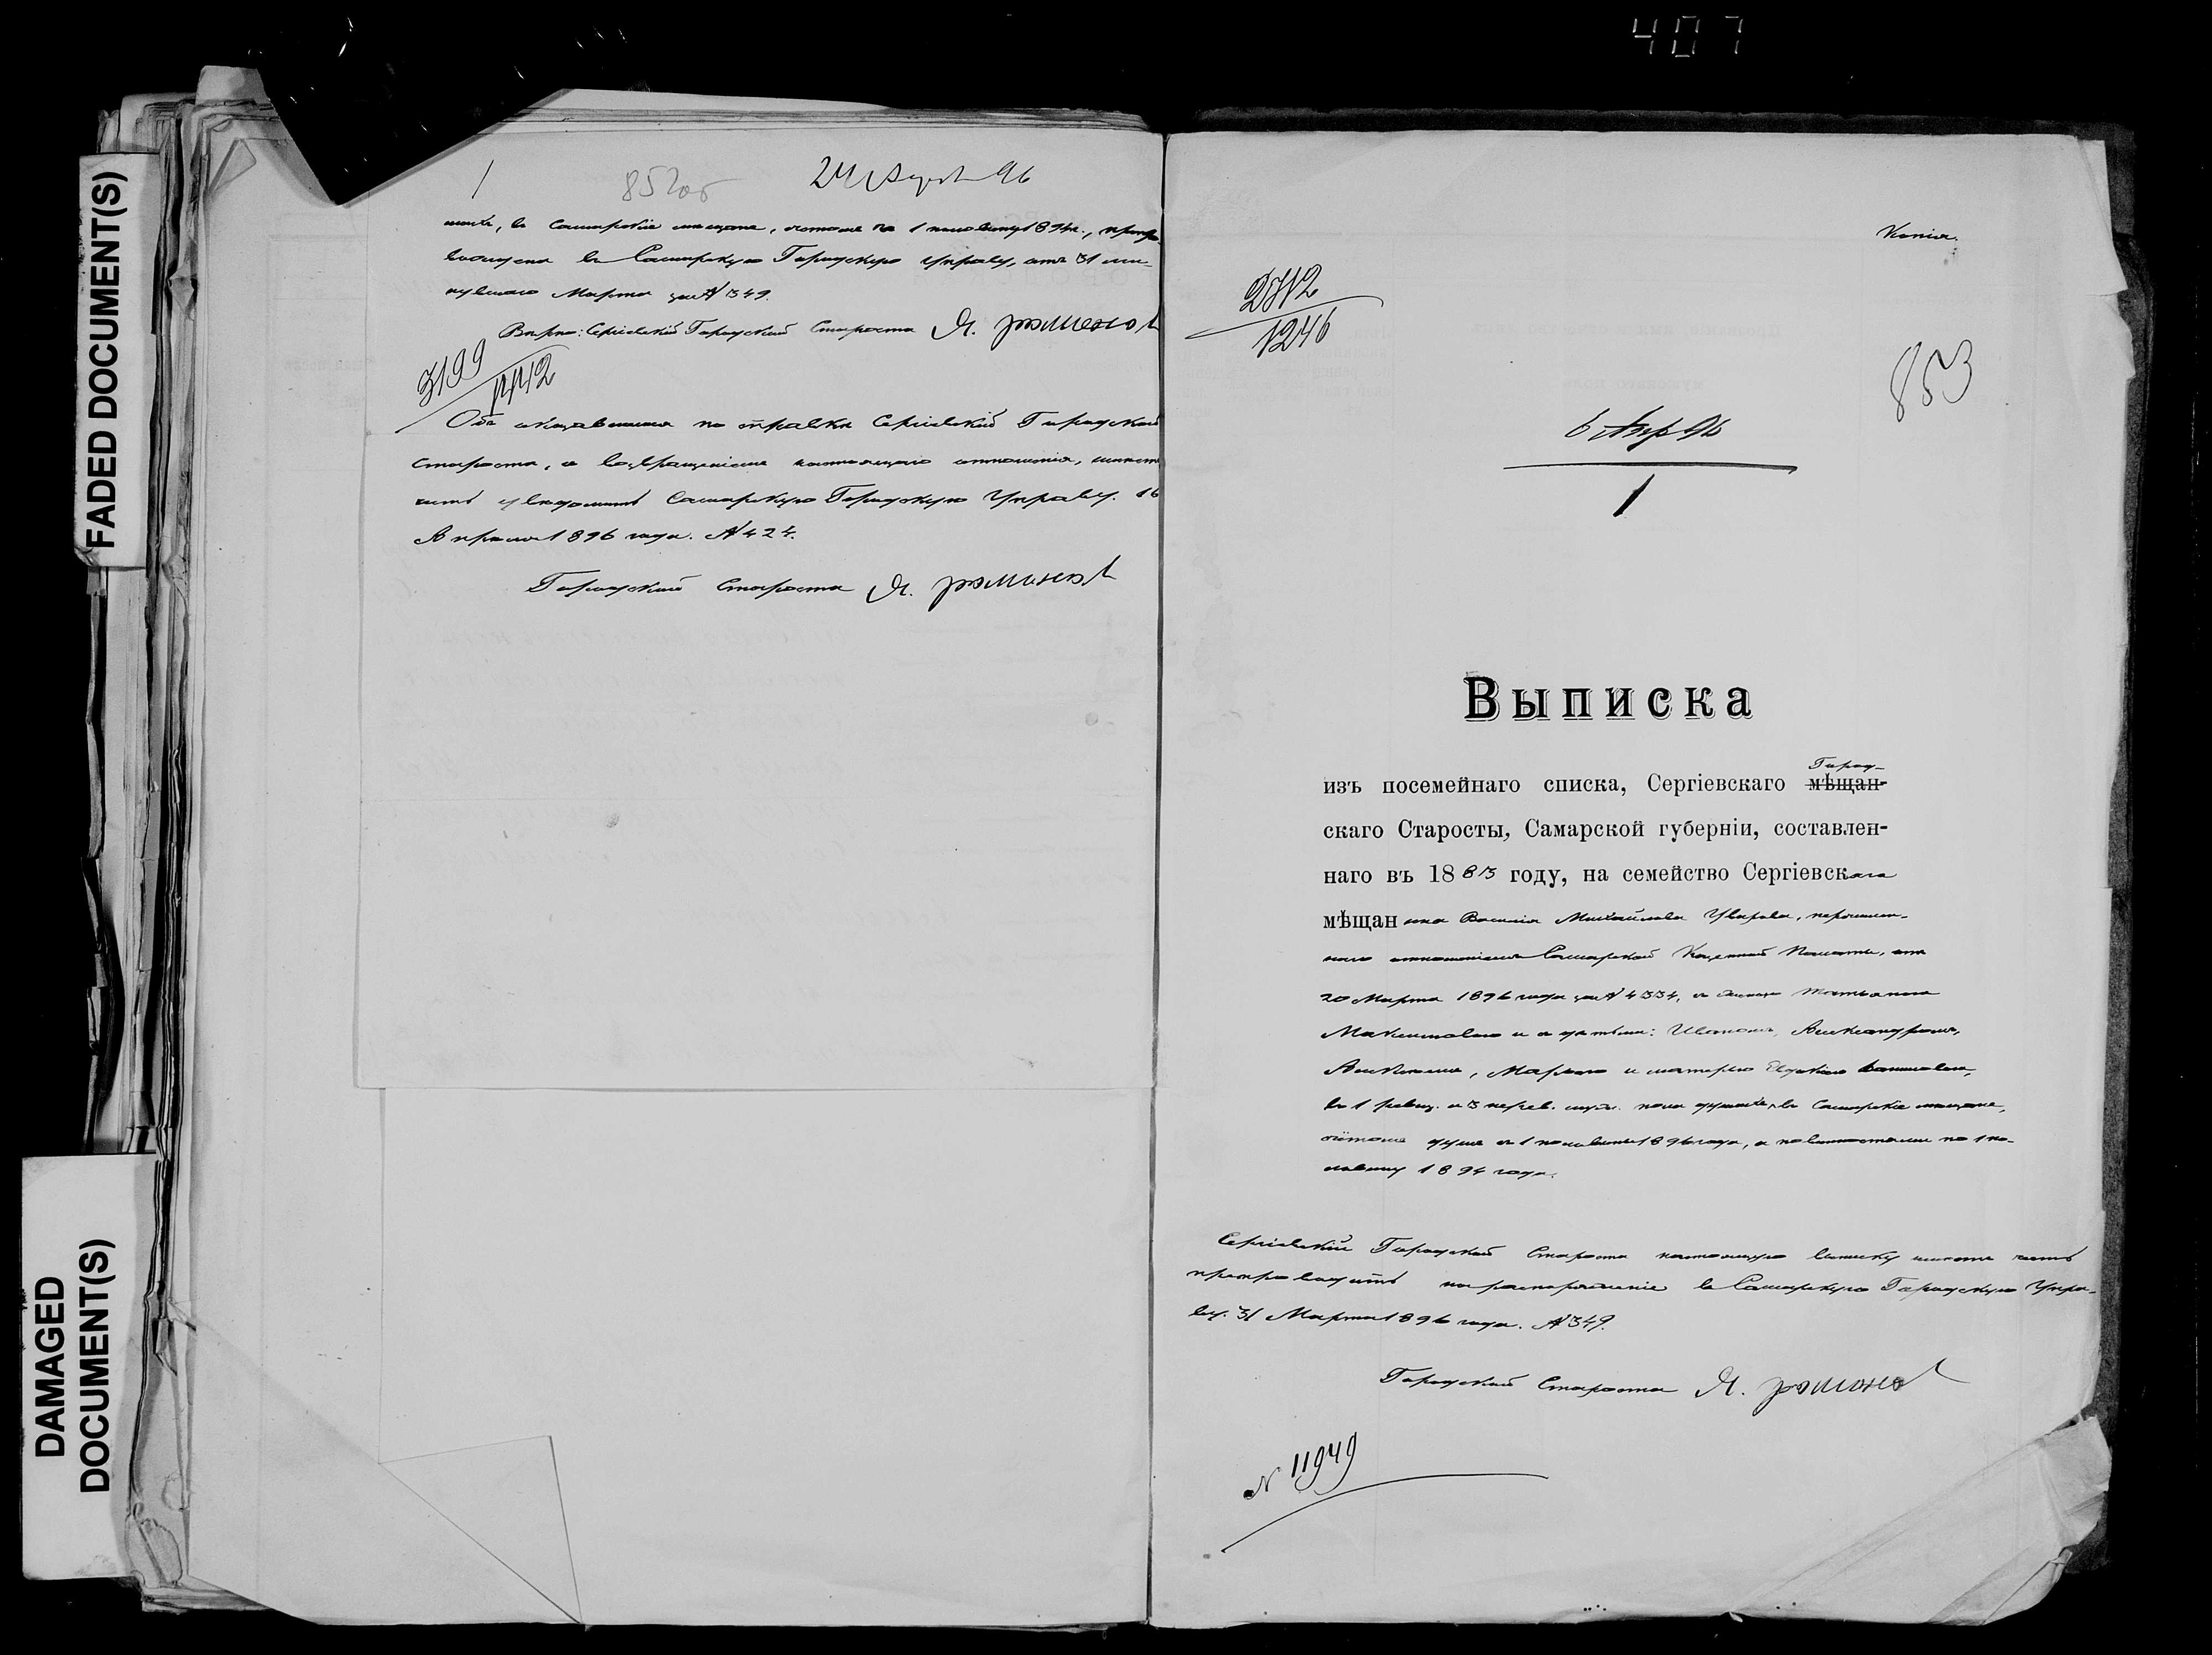 407
FADED DOCUMENT(S)
DAMAGED
DOCUMENT(S)
1
852об
24 Апреля 96
въ Самарскіе мещане, счетомъ по 1 половину 1894 г., препро-
вождена въ Самарскую Городскую Управу, отъ 31 ми-
нувшаго Марта за № 349.
Вѣрно: Сергіевскій Городской Староста Я.
3199
Объ оказавшемся по справкѣ Сергіевскій Городской
Староста, съ возвращеніемъ настоящаго отношенія, имѣетъ
честь увѣдомить Самарскую Городскую Управу. 16
Апрѣля 1896 года. № 424.
Городской Староста Я.
Копія.
1246
853
6 Апр 96
1
Выписка
Город-
изъ посемейнаго списка, Сергіевскаго мѣщан-
скаго Старосты, Самарской губерніи, составлен-
наго въ 1883 году, на семейство Сергіевскаго
мѣщанина Василія Михайлова перечислен-
наго отношеніемъ Самарской Казенной Палаты, отъ
20 Марта 1896 года за № 4334, съ женою Татьяною
Максимовою и съ дѣтьми: Иваномъ, Александромъ,
Марьею и матерью
въ 1 ревиз. и 3 нерев. муж. пола душахъ, въ Самарскіе мещане,
счетомъ душъ съ 1 половины 1896 года, а повинностями по 1 по-
ловину 1894 года.
Сергіевскій Городской Староста настоящую выписку имѣетъ честь
препроводить на распоряженіе въ Самарскую Городскую Упра-
ву. 31 Марта 1896 года. № 349.
Городской Староста Я.
№ 11949